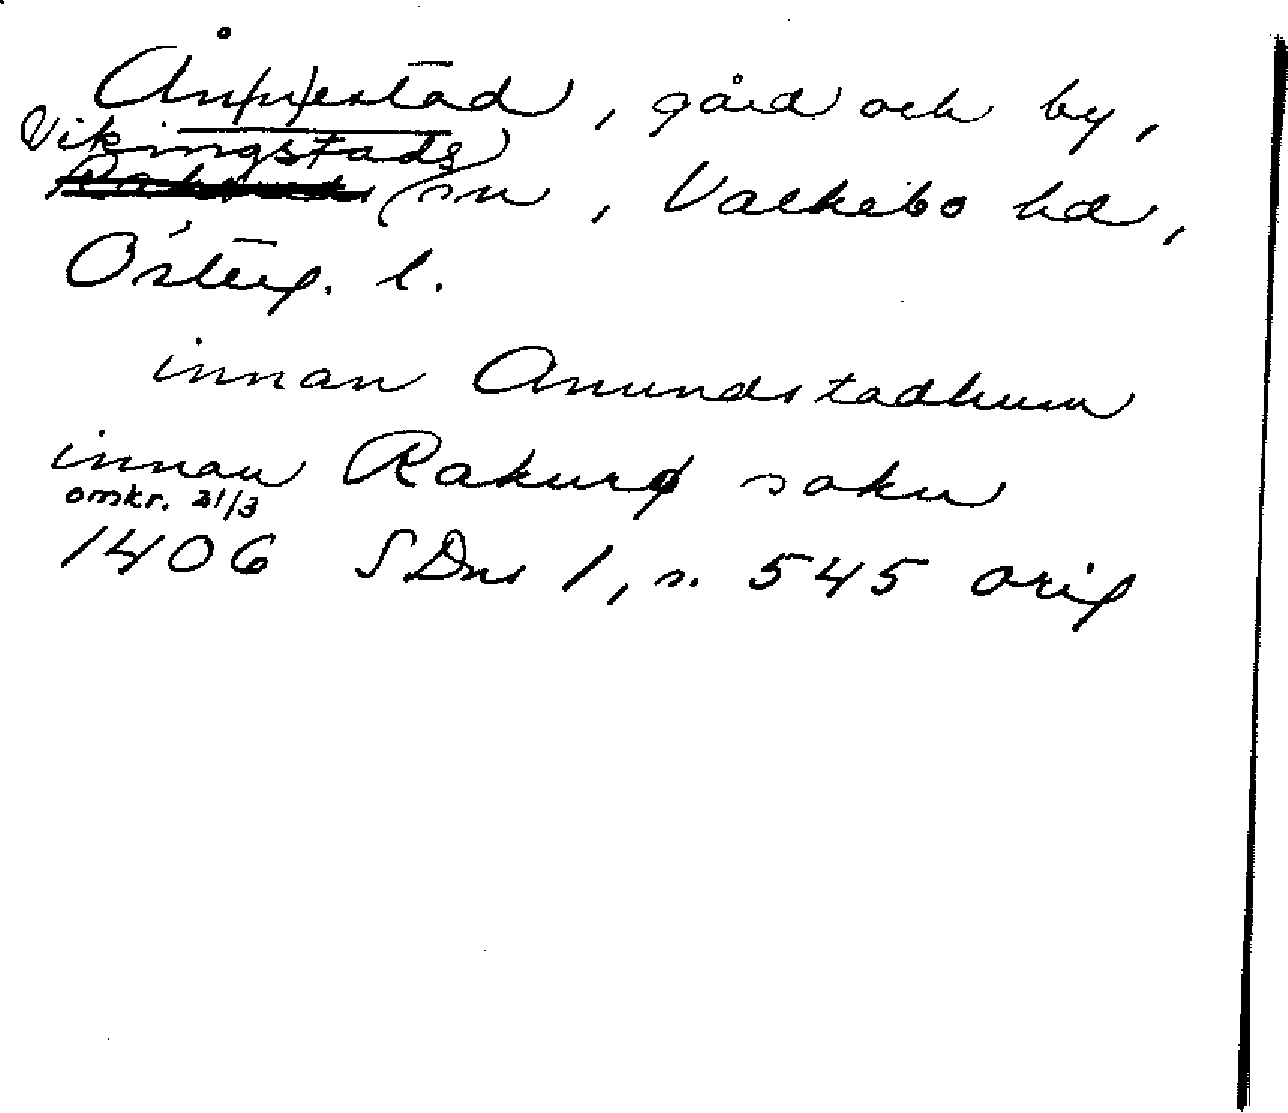 Ån(n)estad, gård och by,
Vikingstads
sn, Valkebo hd,
Österg. l.
innan Anundstadhum
innan Rakurd sokn
omkr. 21/3
1406 SDns 1, s. 545 orig